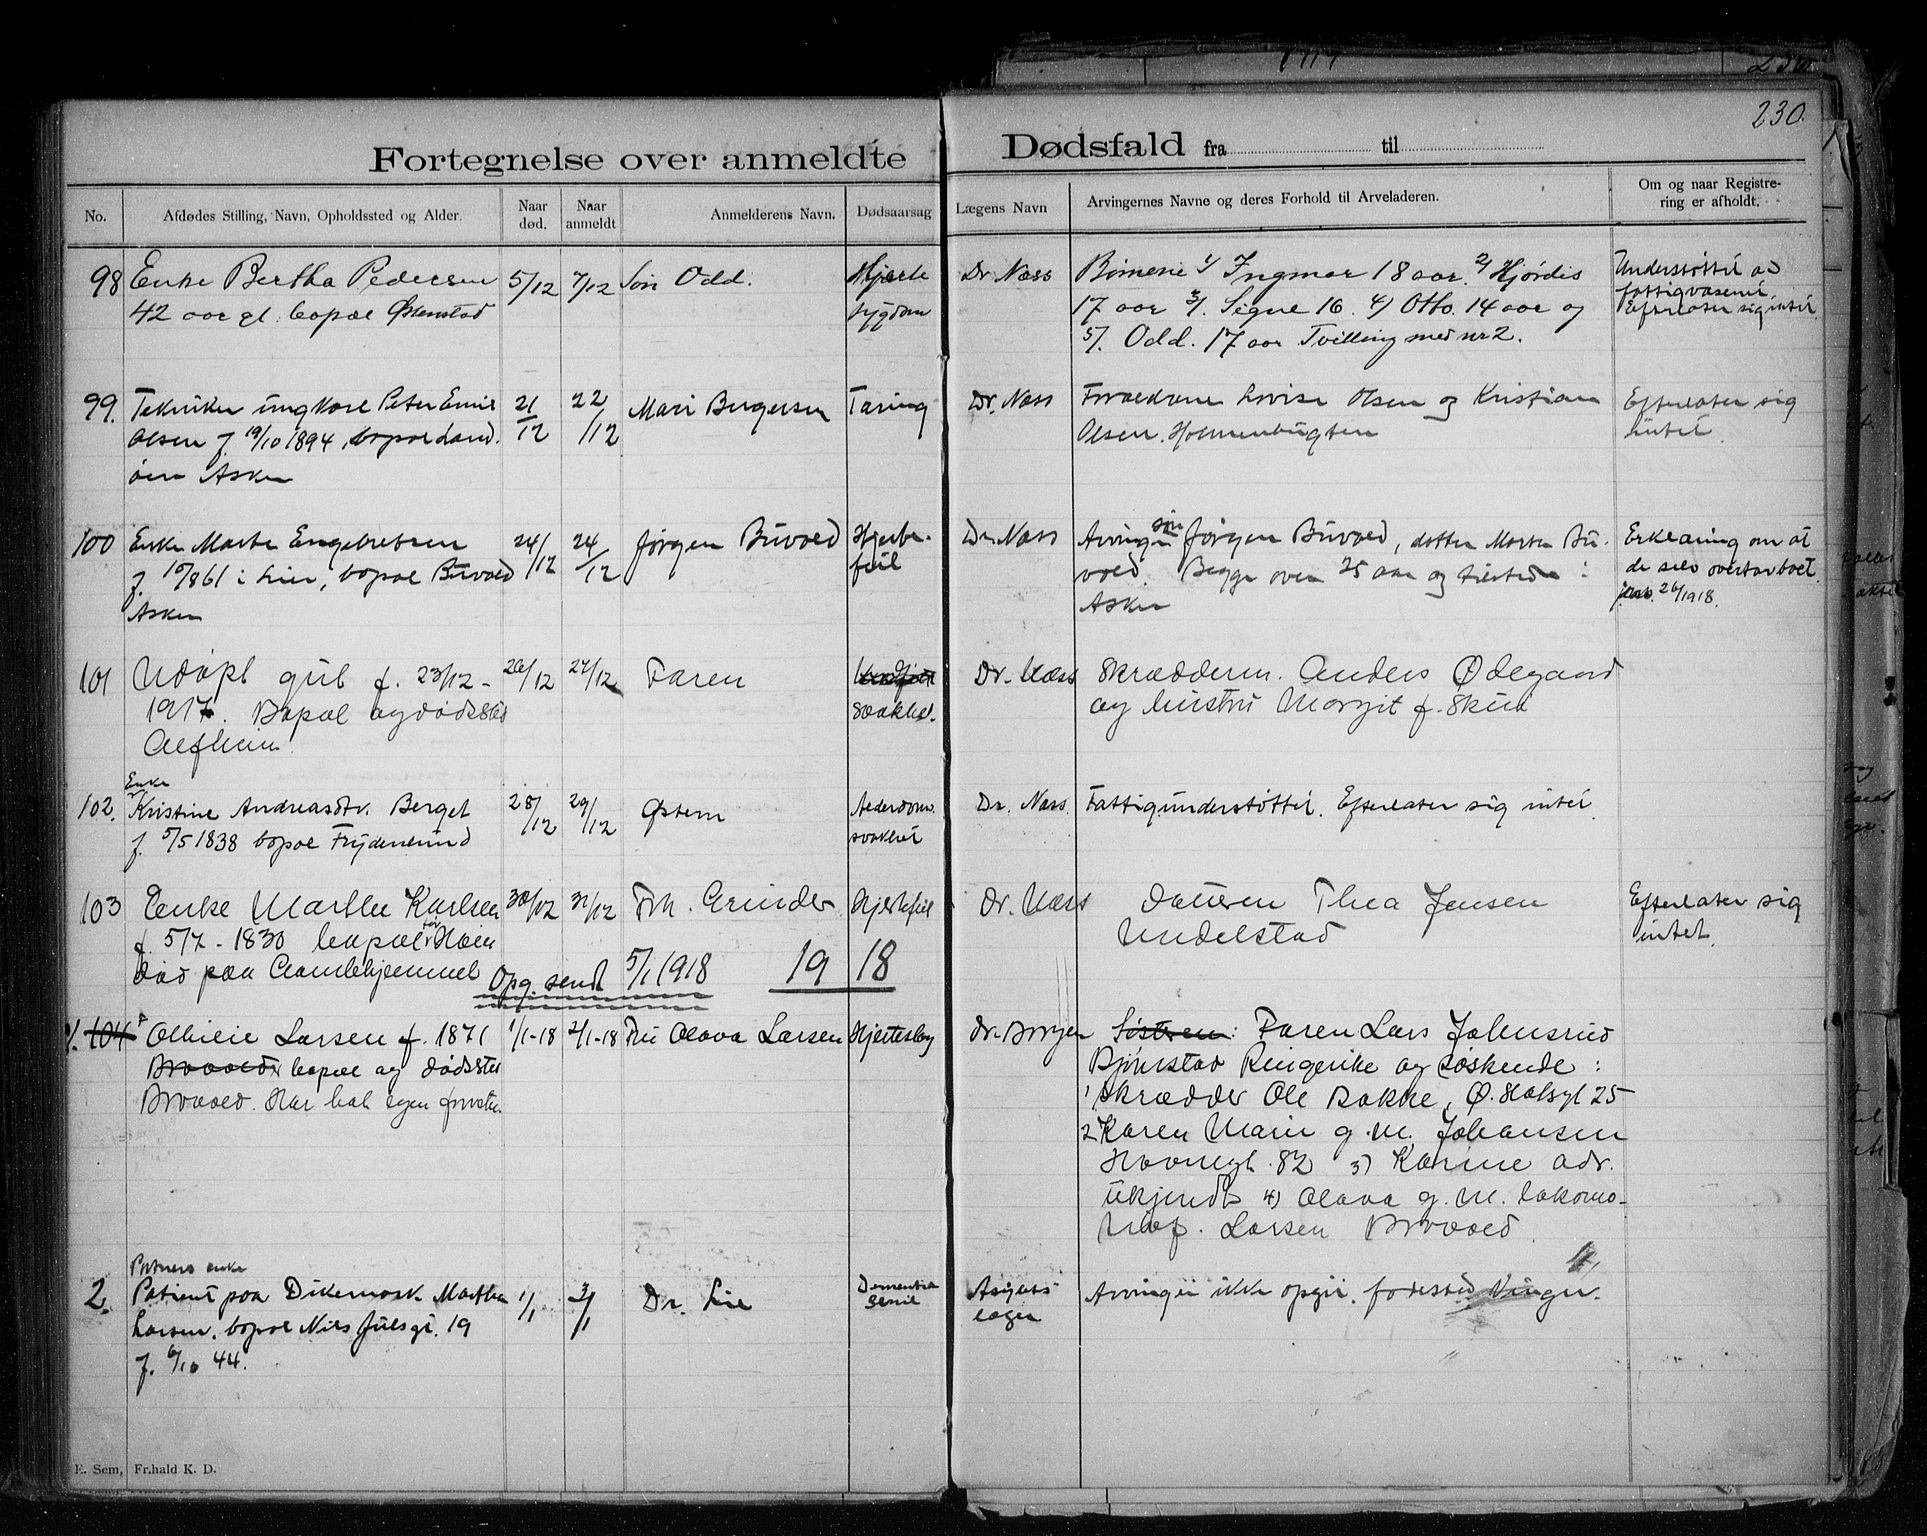 230.
Fortegnelse over anmeldte Dødsfald fra til
No.
Afdødes Stilling, Navn, Opholdssted og Alder.
Naar død.
Naar anmeldt
Anmelderens Navn.
Dødsaarsag
Lægens Navn
Arvingernes Navne og deres Forhold til Arveladeren.
Om og naar Registre-
ring er afholdt.
98 Enke Bertha Pedersen
42 aar gl. bopæl Østenstad
5/12
7/12
Søn Odd.
Hjærte
sygdom
Dr. Næss
Børnene 1/ Ingmar 18 aar. 2/ Hjørdis
17 aar 3/. Signe 16. 4/ Otto. 14 aar og
5/. Odd. 17 aar Tvilling med nr 2.
Understøttet av
fattigvæsenet.
Efterlater sig intet
99. Tekniker ungkarl Peter Emil
Olsen f. 19/10 1894, bopæl Land.
øen Asker
21/12
22/12
Mari Bergersen
Tæring
Dr. Næss
Forældrene Lovise Olsen og Kristian
Olsen. Holmenbugten
Efterlater sig
intet
100 Enke Marte Engebretsen
f. 10/8 61 i Lier, bopæl Buvold
Asker
24/12
24/12
Jørgen Buvold
Hjerte-
feil
Dr. Næss
søn
Arvinger Jørgen Buvold, datter Marten Bu-
vold. Begge over 25 aar og tilstede i
Asker
Erklæring om at
de selv overtar boet
26/1918.
101 Udøpt gut f. 23/12 -
1917. Bopæl og dødssted
Alfheim
26/12
27/12
Faren
Svakhet.
Dr. Næss
Skrædderm. Anders Ødegaard
og hustru Margit f. Skui
Enke
102. Kristine Andreasdtr. Berget
f. 5/5 1838 bopæl Frydenlund
28/12
29/12
Østern
Alderdoms.
svakhet
Dr. Næss
Fattigunderstøttet. Efterlater sig intet
103 Enke Marthe Karlsen
f. 5/7 - 1830 bopæl Høen
død paa Gamlehjemmet
30/12
31/12
Frk. Grinder
Hjertefeil
Dr. Næss
Datteren Thea Jensen
Undelstad
Efterlater sig
intet.
Opg. sendt 5/1 1918 19 18
1. 104 Olhilie Larsen f. 1871
Brovold bopæl og dødssted
Brovold. Har hat egen forretn.
1/1-18
2/1-18
Fru Olava Larsen
Hjerteslag
Dr. Borgen
Søstren: Faren Lars Johnsrud
Bjønstad Ringerike og søskende:
1 Skrædder Ole Bakke, Ø. Slotsgt 25
2 Karen Marie g. m. Johansen
Havnegt. 82 3) Karine adr.
ukjendt 4) Olava g. m. lokomo-
tivf. Larsen Brovold.
enke
2. Patient paa Dikemark Martha
Larsen, bopæl Nils Juelsgt. 19
f. 6/10 44.
1/1
3/1
Dr. Lie
Dementia
senil
Asylets
læge
Arvinger ikke opgit. fødested Vinger.
E. Sem, Fr.hald K. D.